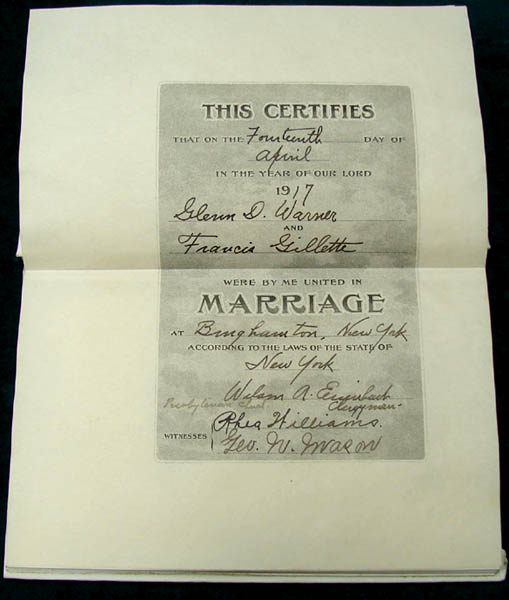 THIS CERTIFIES
THAT ON THE Fourteenth DAY OF
April
IN THE YEAR OF OUR LORD
1917
Glenn D. Warner
AND
Francis Gillette
WERE BY ME UNITED IN
MARRIAGE
AT Binghamton, New York
ACCORDING TO THE LAWS OF THE STATE OF
New York
A.
Presbyterian Clergyman-
Rhea Williams.
WITNESSES
Geo. W.